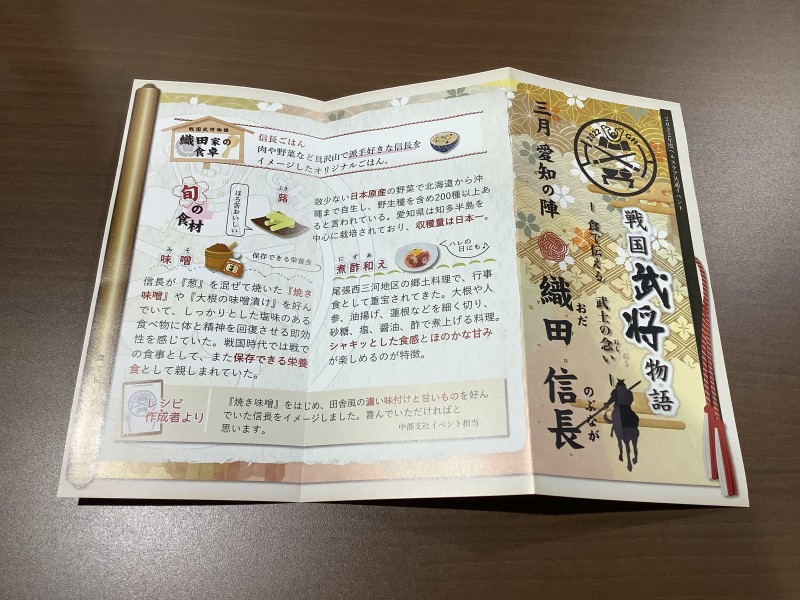 2022年度ヘルスケア共通イベント
戦国武将物語
― 食で伝える 武士の念い ―
三月 愛知の陣
おだ のぶなが
織田 信長
2022
戦国武将物語
織田家の
食卓
信長ごはん
肉や野菜など具沢山で派手好きな信長を
イメージしたオリジナルごはん。
旬の食材
ほろ苦おいしい
ふき
蕗
数少ない日本原産の野菜で北海道から沖
縄まで自生し、野生種を含め200種以上あ
ると言われている。愛知県は知多半島を
中心に栽培されており、収穫量は日本一。
みそ
味噌
保存できる栄養食
信長が『葱』を混ぜて焼いた『焼き
味噌』や『大根の味噌漬け』を好ん
でいて、しっかりとした塩味のある
食べ物に体と精神を回復させる即効
性を感じていた。戦国時代では戦で
の食事として、また保存できる栄養
食として親しまれていた。
にずあ
煮酢和え
ハレの
日にも
尾張西三河地区の郷土料理で、行事
食として重宝されてきた。大根や人
参、油揚げ、蓮根などを細く切り、
砂糖、塩、醤油、酢で煮上げる料理。
シャキッとした食感とほのかな甘み
が楽しめるのが特徴。
レシピ
作成者より
『焼き味噌』をはじめ、田舎風の濃い味付けと甘いものを好ん
でいた信長をイメージしました。喜んでいただければと
思います。
中部支社イベント担当